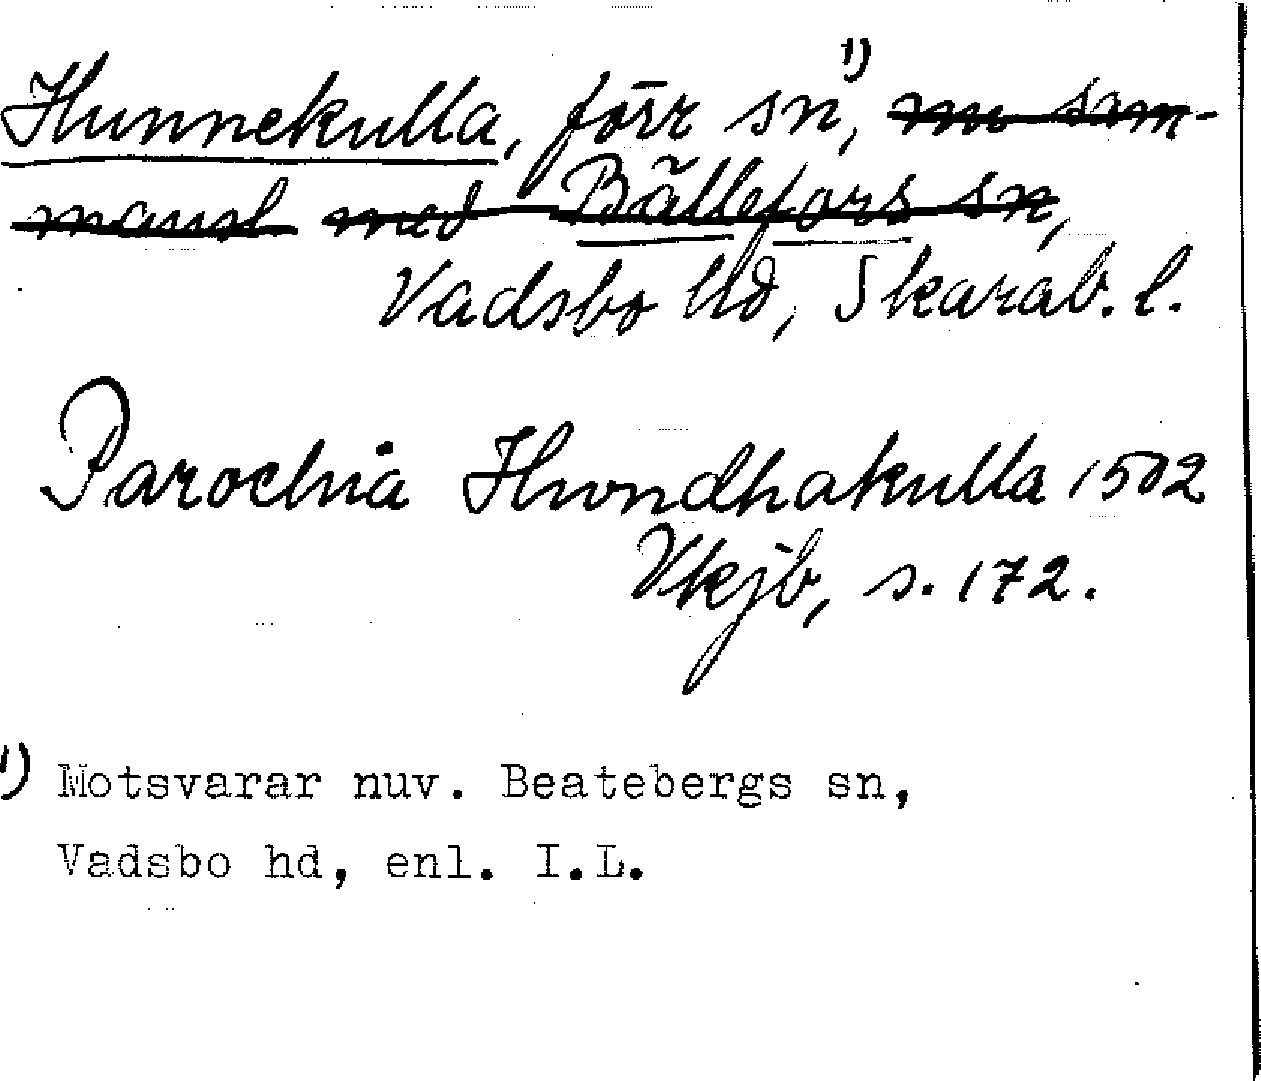 Hunnekulla, förr sn¹⁾, nu sam-
mansl med Bällefors sn,
Vadsbo hd, Skarab. l.
Parochia Hwndhakulla 1502
Vkjb, s. 172.
¹⁾ Motsvarar nuv. Beatebergs sn,
Vadsbo hd, enl. I.L.